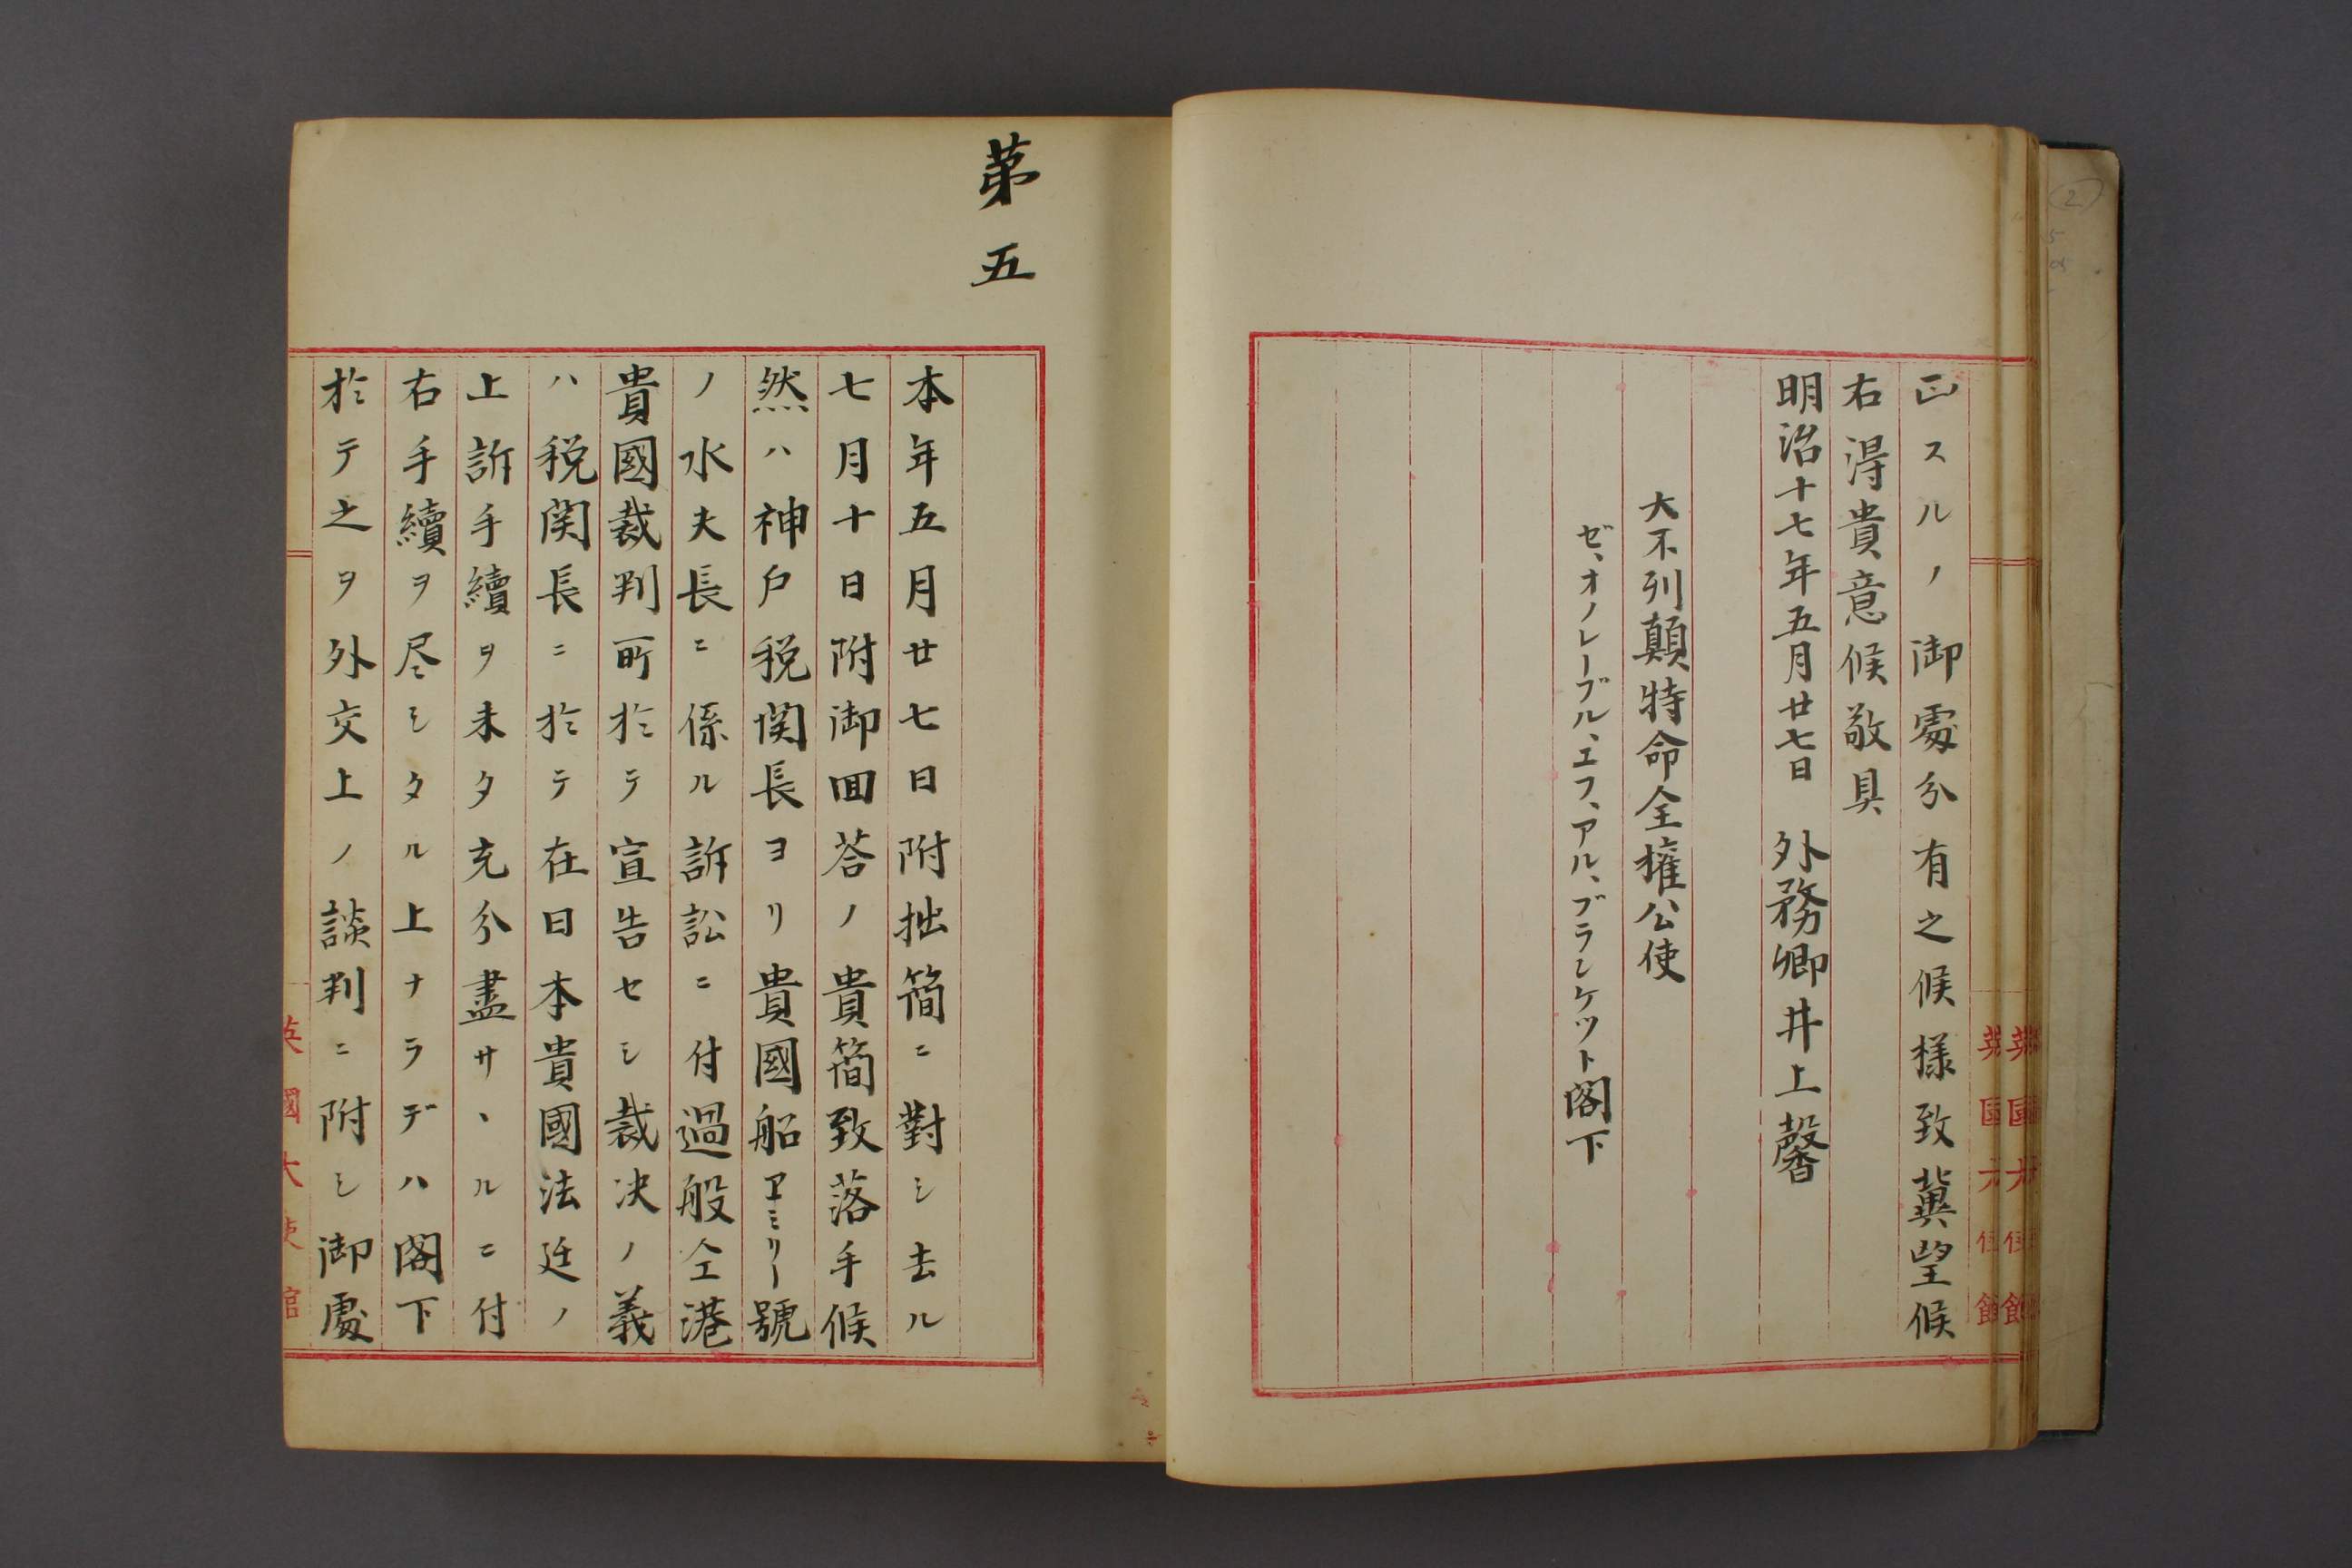 正スルノ御處分有之候樣致冀望候
右得貴意候敬具
明治十七年五月廿七日 外務卿井上馨
大不列顛特命全權公使
ゼ、オノレーブル、エフ、アル、プランケツト閣下
英國大使館
第五
本年五月廿七日附拙簡ニ對シ去ル
七月十日附御回荅ノ貴簡致落手候
然ハ神戸税関長ヨリ貴國船ヱミリー號
ノ水夫長ニ係ル訴訟ニ付過般仝港
貴國裁判所於テ宣告セシ裁决ノ義
ハ税関長ニ於テ在日本貴國法廷ノ
上訴手續ヲ未タ充分盡サヽルニ付
右手續ヲ尽シタル上ナラデハ閣下
於テ之ヲ外交上ノ談判ニ附シ御處
英國大使館